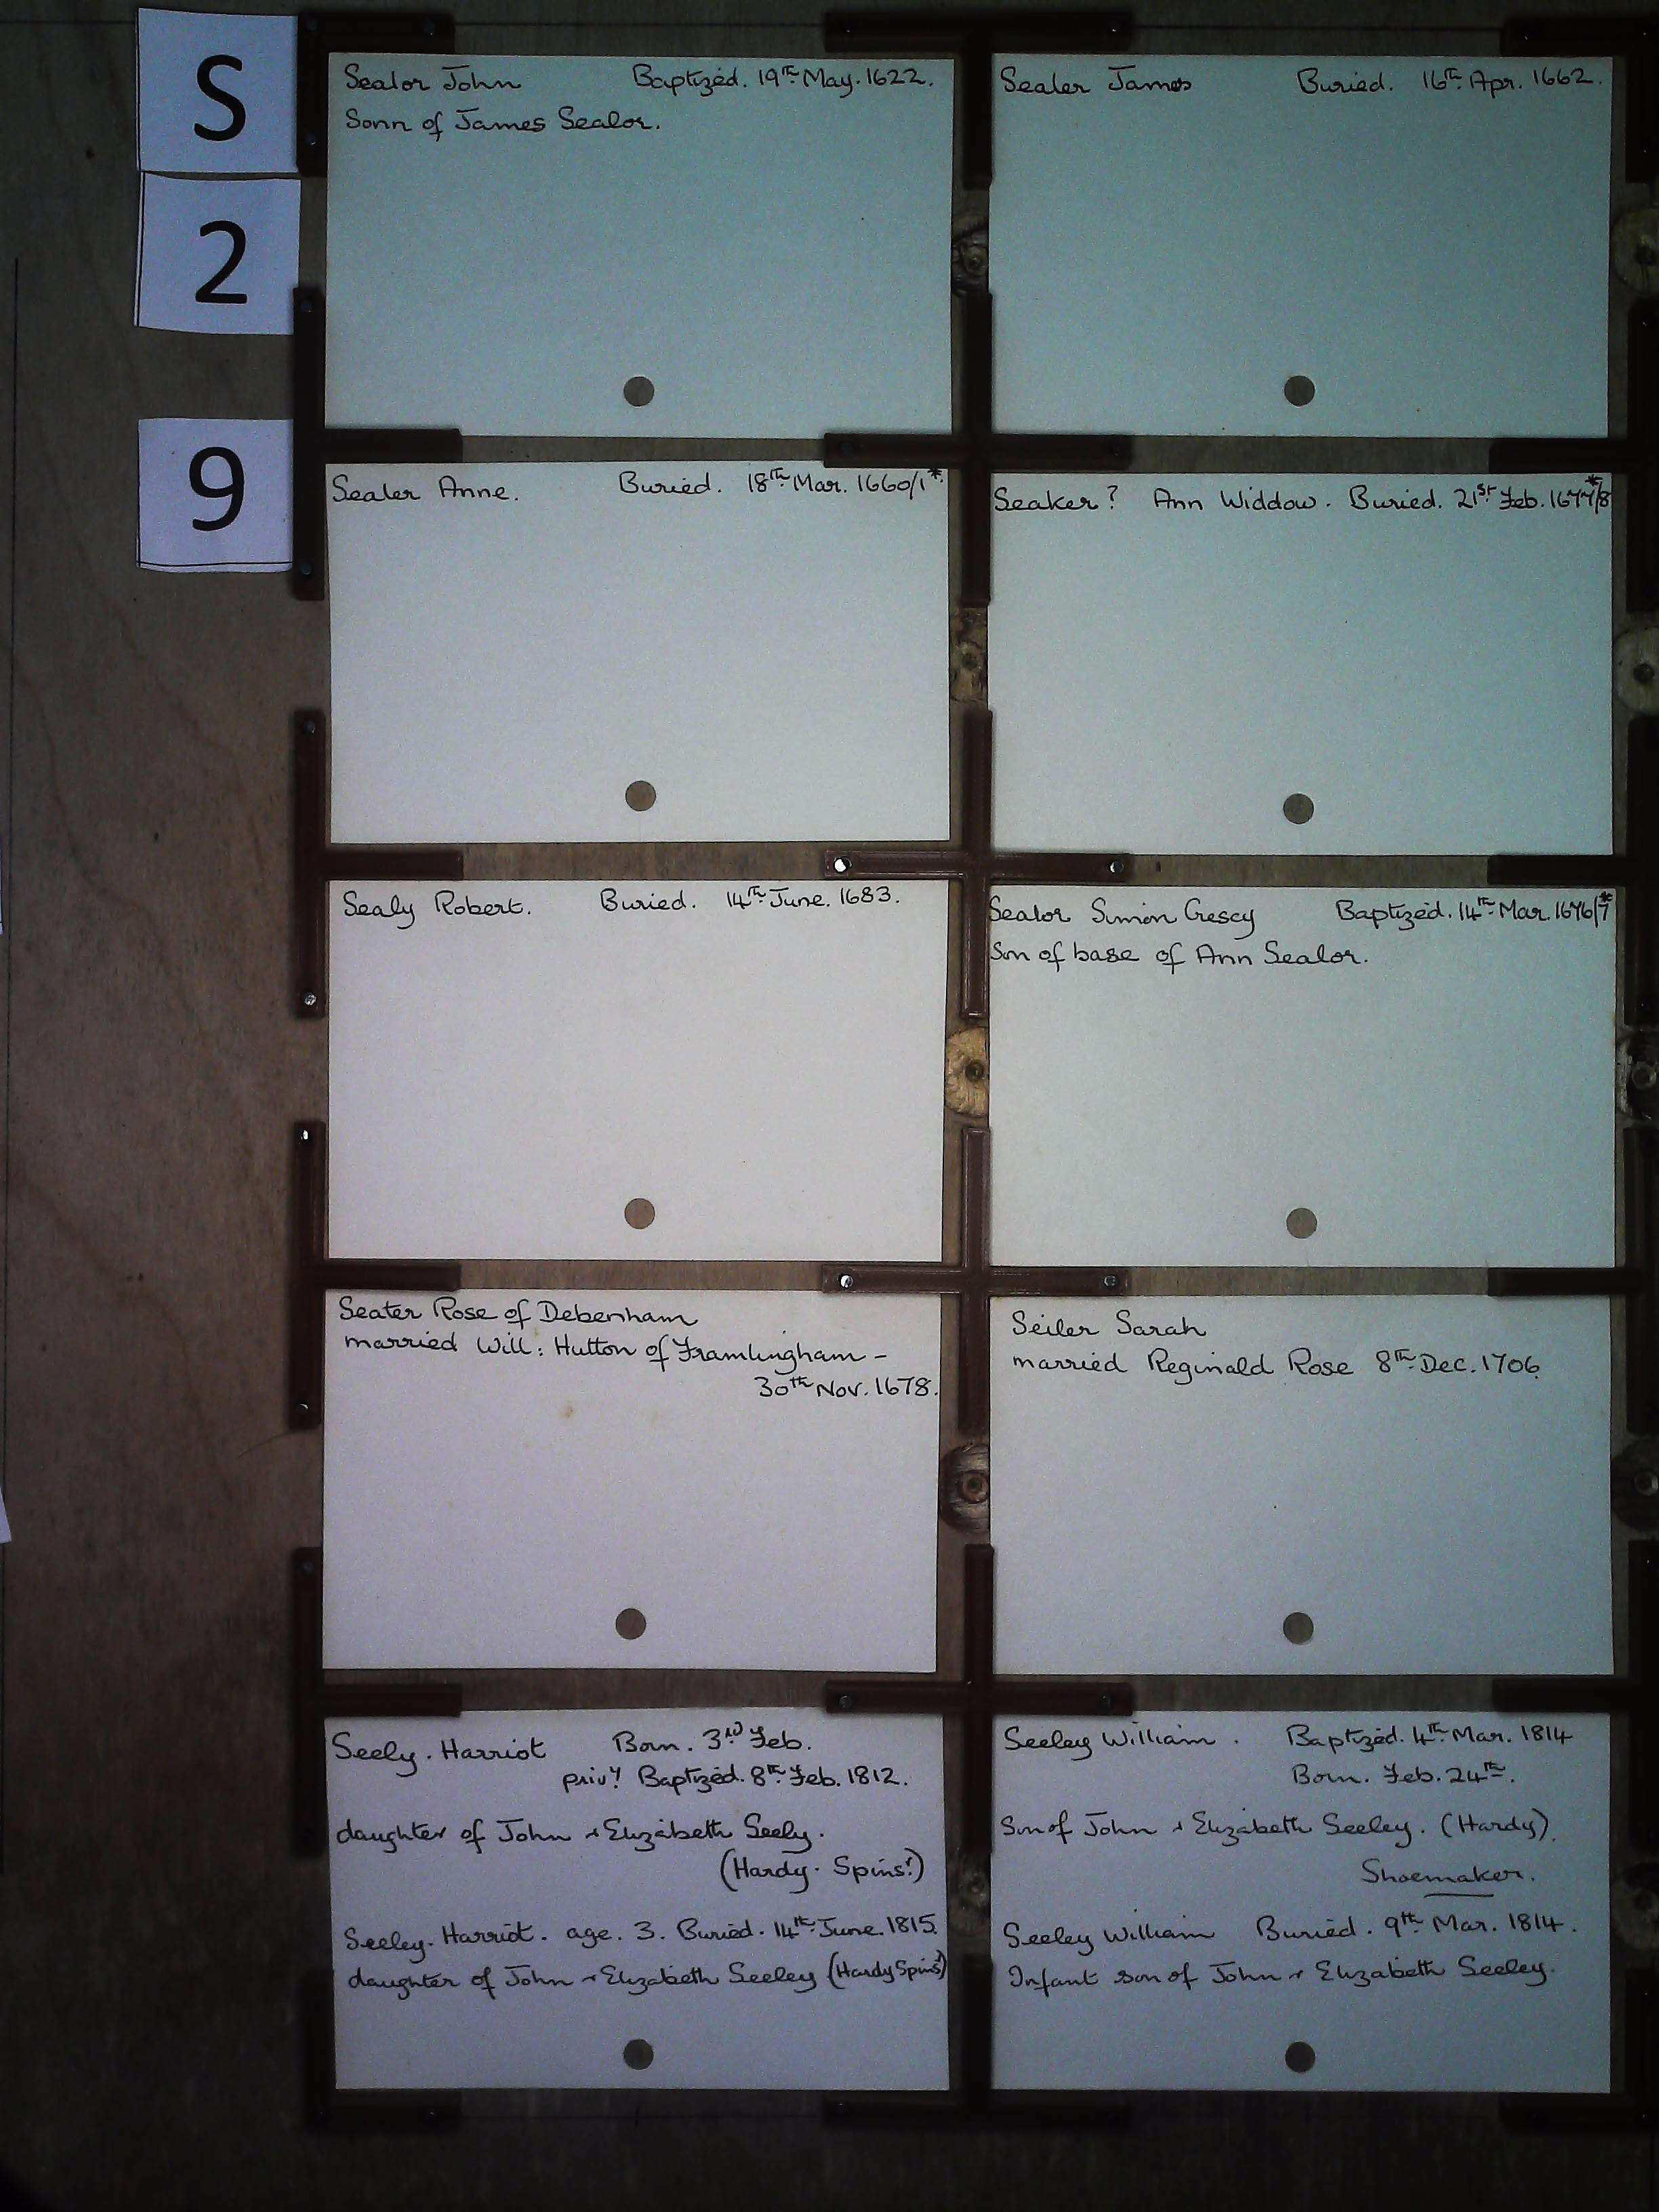 S
2
9
Sealor John Baptized. 19th May. 1622.
Sonn of James Sealor.
Sealer James Buried. 16th Apr. 1662.
Sealer Anne. Buried. 18th Mar. 1660/1*
Seaker? Ann Widdow. Buried. 21st Feb. 1677/8*
Sealy Robert. Buried. 14th June. 1683.
Sealor Simon Crescy Baptized. 14th Mar. 1676/7*
Son of base of Ann Sealor.
Seater Rose of Debenham
married Will: Hutton of Framlingham -
30th Nov. 1678.
Seiler Sarah
married Reginald Rose 8th Dec. 1706.
Seely. Harriot Born. 3rd Feb.
privy Baptized. 8th Feb. 1812.
daughter of John & Elizabeth Seely.
(Hardy. Spinsr)
Seeley. Harriot. age. 3. Buried. 14th June. 1815.
daughter of John & Elizabeth Seeley (Hardy Spinsr)
Seeley William. Baptized. 4th Mar. 1814
Born. Feb. 24th.
Son of John & Elizabeth Seeley. (Hardy).
Shoemaker.
Seeley William Buried. 9th Mar. 1814.
Infant son of John & Elizabeth Seeley.